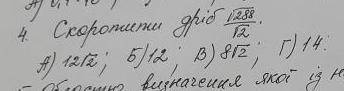 4. Скоротити дріб √288/√2.
А) 12√2; Б) 12; В) 8√2; Г) 14.
визначення якої із